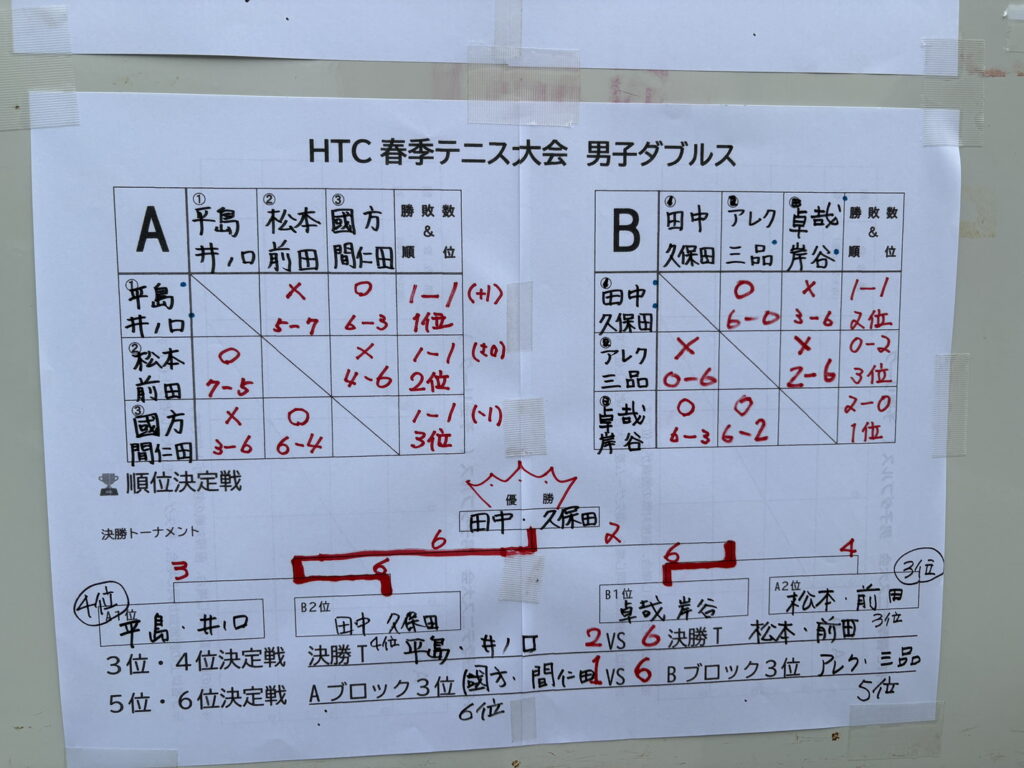 HTC 春季テニス大会 男子ダブルス
A ①平島 井ノ口 ②松本 前田 ③國方 間仁田 勝敗数&順位
①平島 井ノ口 × 5-7 ○ 6-3 1-1 (+1) 1位
②松本 前田 ○ 7-5 × 4-6 1-1 (±0) 2位
③國方 間仁田 × 3-6 ○ 6-4 1-1 (-1) 3位
B 田中 久保田 アレク 三品 卓哉 岸谷 勝敗数&順位
田中 久保田 ○ 6-0 × 3-6 1-1 2位
アレク 三品 × 0-6 × 2-6 0-2 3位
卓哉 岸谷 ○ 6-3 ○ 6-2 2-0 1位
順位決定戦
優勝
田中・久保田
決勝トーナメント
6 2
3 6 6 4
4位 A1位 平島・井ノ口
B2位 田中 久保田
B1位 卓哉 岸谷
A2位 松本・前田 3位
3位・4位決定戦 決勝T 4位 平島・井ノ口 2 VS 6 決勝T 松本・前田 3位
5位・6位決定戦 Aブロック3位 國方・間仁田 1 VS 6 Bブロック3位 アレク・三品
6位 5位